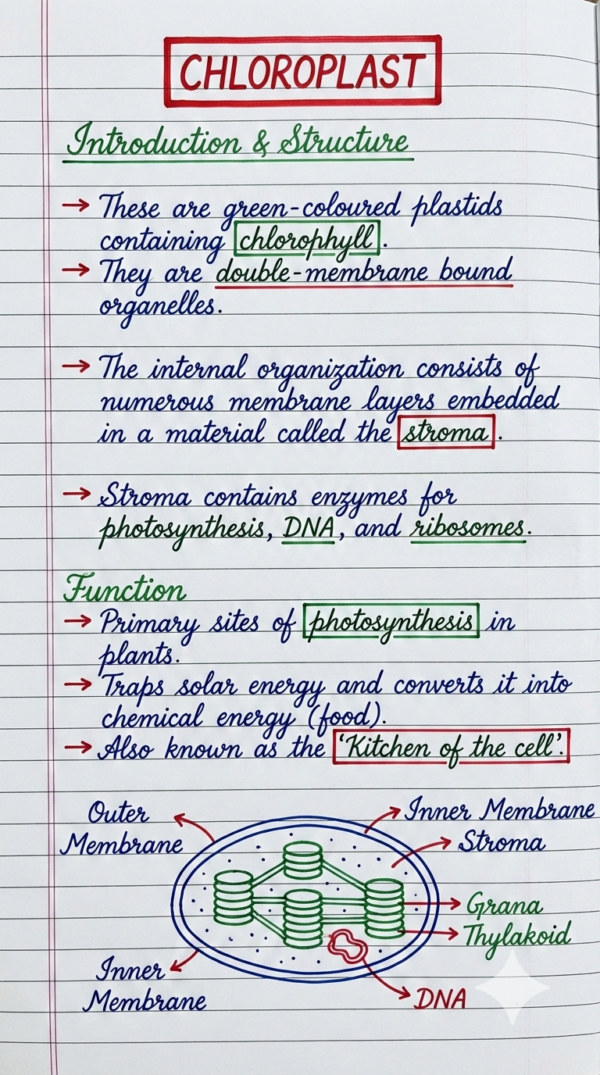 CHLOROPLAST
Introduction & Structure
→ These are green-coloured plastids
containing chlorophyll.
→ They are double-membrane bound
organelles.
→ The internal organization consists of
numerous membrane layers embedded
in a material called the stroma.
→ Stroma contains enzymes for
photosynthesis, DNA, and ribosomes.
Function
→ Primary sites of photosynthesis in
plants.
→ Traps solar energy and converts it into
chemical energy (food).
→ Also known as the 'Kitchen of the cell'.
Outer
Membrane
Inner Membrane
Stroma
Grana
Thylakoid
Inner
Membrane
DNA